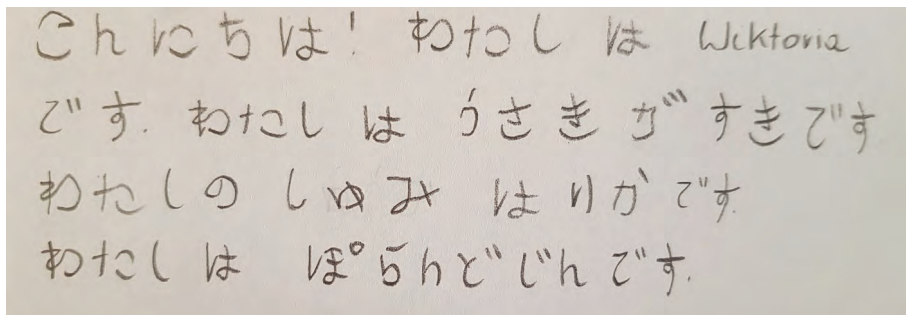 こんにちは! わたし は Wiktoria
です. わたし は うさき が すきです
わたしの しゅみ は りかです.
わたし は ぽらんどじんです.